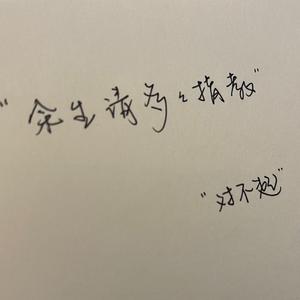 "余生请多々指教"
"对不起"